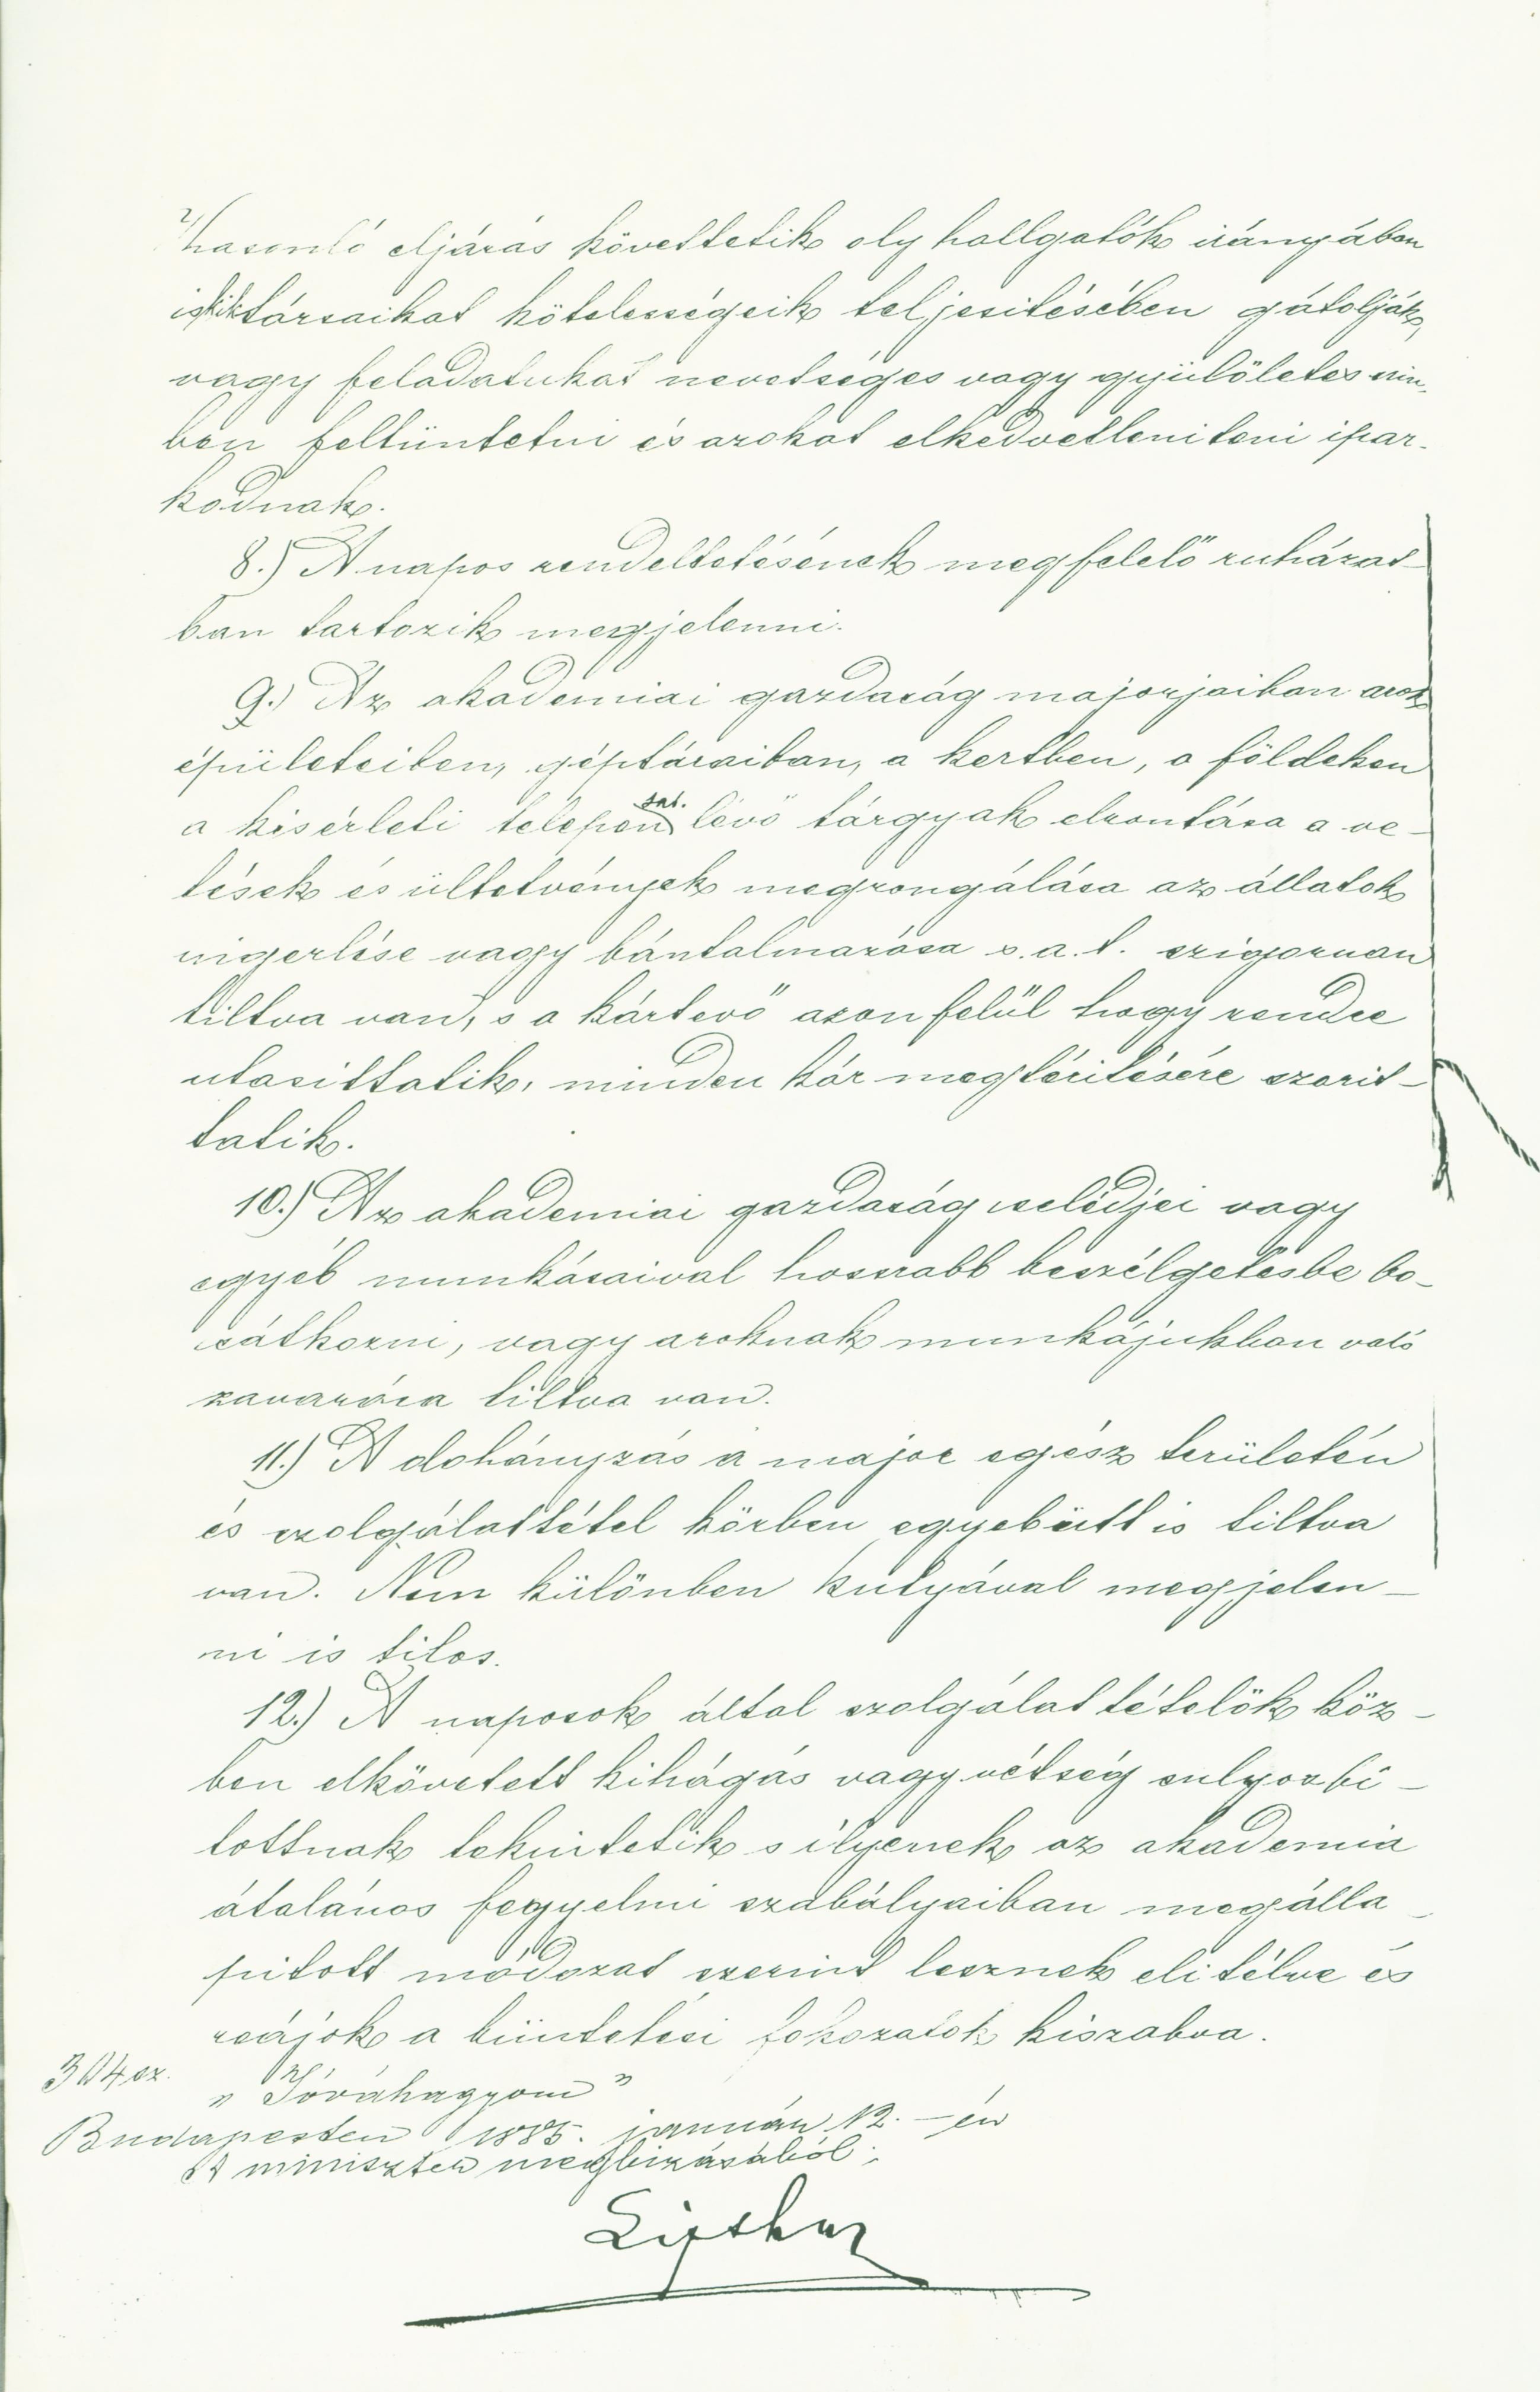 hasonló eljárás követtetik oly hallgatók irányában
is, kik társaikat kötelességeik teljesitésében gátolják,
vagy feladatukat nevetséges vagy gyülöletes szin-
ben feltüntetni és azokat elkedvetleniteni ipar-
kodnak.
8.) A napos rendeltetésének megfelelő ruházat-
ban tartozik megjelenni.
9.) Az akademiai gazdaság majorjaiban azok
épületeiben, géptáraiban, a kertben, a földeken
a kisérleti telepen sat. lévő tárgyak elrontása a ve-
tések és ültetvények megrongálása az állatok
ingerlése vagy bántalmazása s.a.t. szigoruan
tiltva van, s a kártevő azon felül hogy rendre
utasittatik, minden kár megtéritésére szorit-
tatik.
10.) Az akademiai gazdaság cselédjei vagy
egyéb munkásaival hosszabb beszélgetésbe bo-
csátkozni, vagy azoknak munkájukban való
zavarása tiltva van.
11.) A dohányzás a major egész területén
és szolgálattétel közben egyebütt is tiltva
van. Nem különben kutyával megjelen-
ni is tilos.
12.) A naposok által szolgálat tételök köz-
ben elkövetett kihágás vagy vétség sulyosbi-
tottnak tekintetik s ilyenek az akademia
átalános fegyelmi szabályaiban megálla-
pitott módozat szerint lesznek elitélve és
reájok a büntetési fokozatok kiszabva.
304 sz.
"Jóváhagyom"
Budapesten 1885. január 12.-én
A miniszter megbizásából: